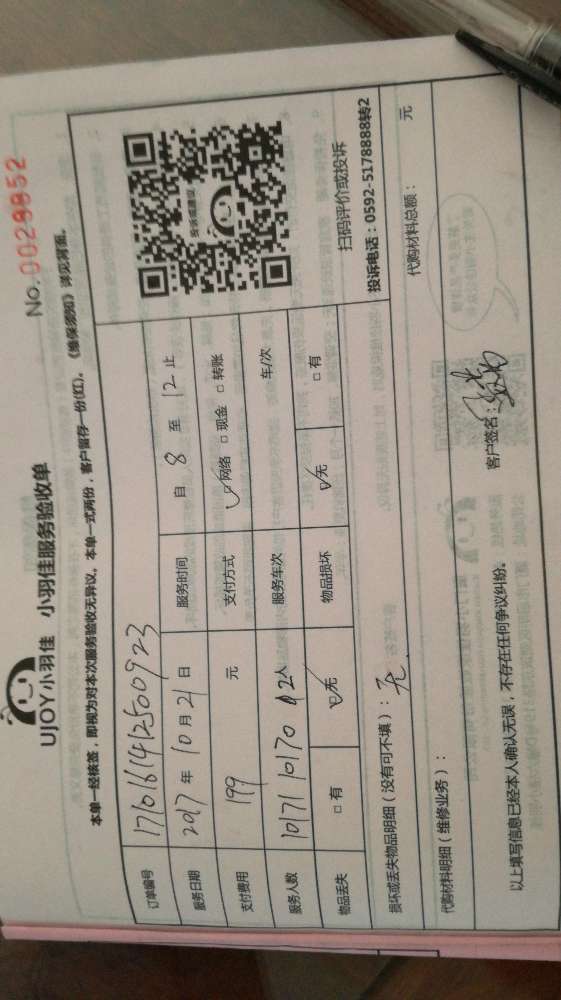 UJOY小羽佳 小羽佳服务验收单
No. 0028852
本单一经核签，即视为对本次服务验收无异议。本单一式两份，客户留存一份(红)。《维保须知》详见背面。
订单编号 1710161412500923
服务日期 2017 年 10 月 21 日 服务时间 自 8 至 12 止
支付费用 199 元 支付方式 ☑网络 □现金 □转账
服务人数 10171 10170 2人 服务车次 车/次
物品丢失 □有 ☑无 物品损坏 ☑无 □有
投诉或建议
扫码评价或投诉
投诉电话：0592-5178888转2
损坏或丢失物品明细（没有可不填）：无
代购材料明细（维修业务）： 代购材料总额： 元
以上填写信息已经本人确认无误，不存在任何争议纠纷。 客户签名：